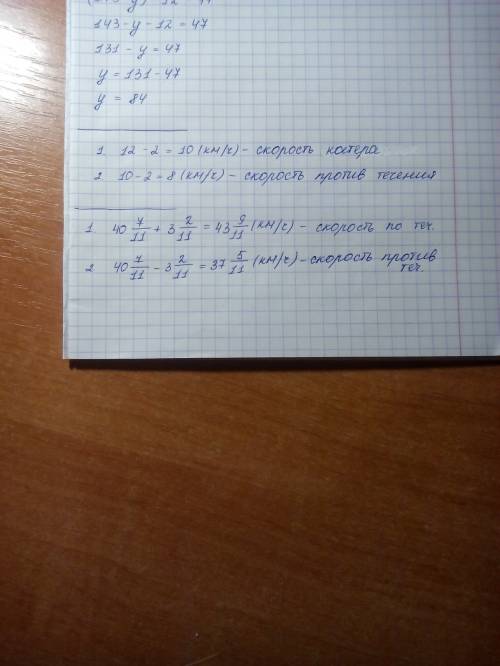 143 - y - 12 = 47
131 - y = 47
y = 131 - 47
y = 84
1 12 - 2 = 10 (км/ч) - скорость катера
2 10 - 2 = 8 (км/ч) - скорость против течения
1 40 7/11 + 3 2/11 = 43 9/11 (км/ч) - скорость по теч.
2 40 7/11 - 3 2/11 = 37 5/11 (км/ч) - скорость против теч.